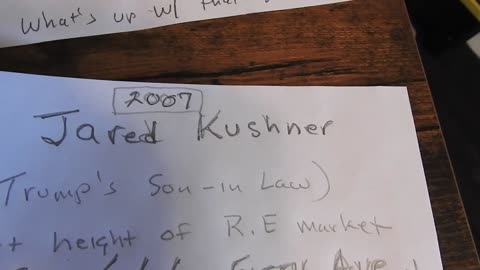 What's up w/ that
2007
Jared Kushner
Trump's Son-in Law)
height of R.E market
Ave